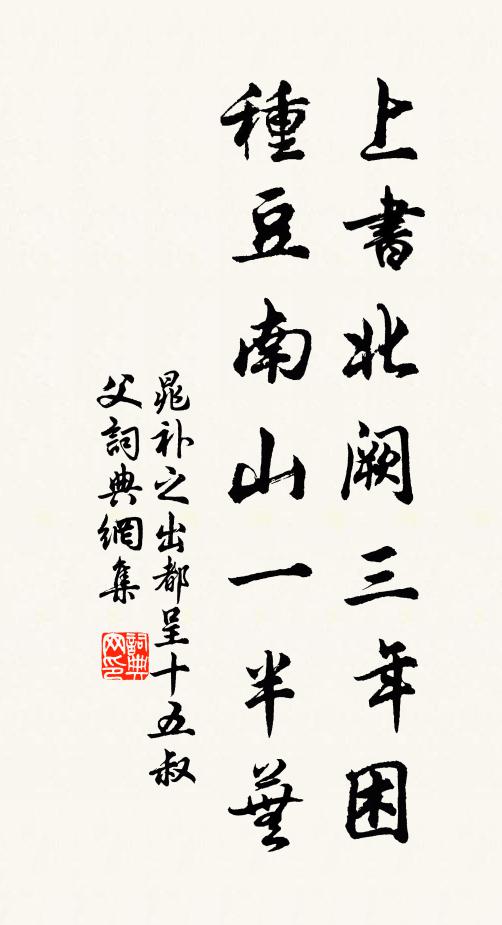 上書北闕三年困
種豆南山一半蕪
晁补之出都呈十五叔
父詞典網集
詞典網印